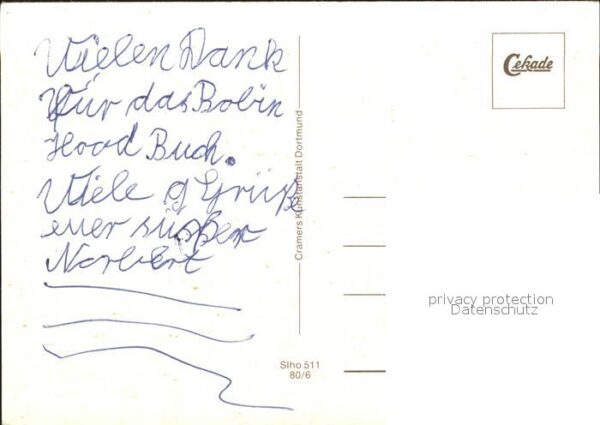 Vielen Dank
Für das Robin
Hood Buch.
Viele g Grüße
euer süßer
Norbert
Cekade
Cramers Kunstanstalt Dortmund
Slho 511
80/6
privacy protection
Datenschutz